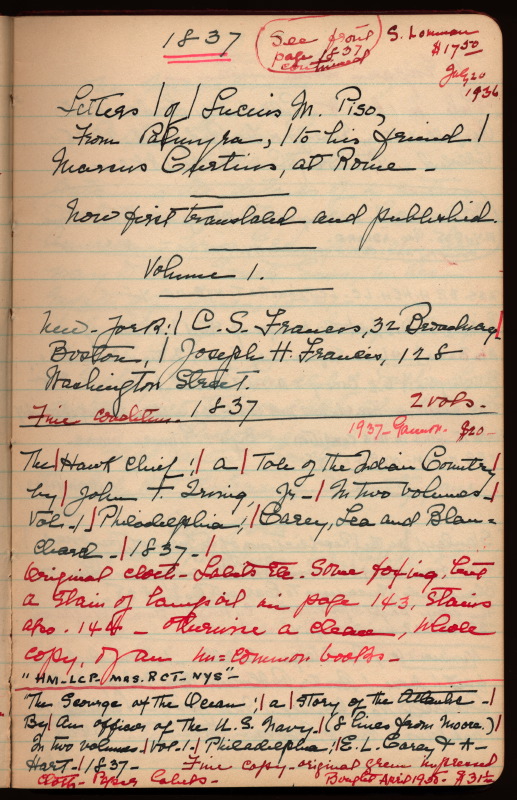 1837
See front
page 1837
continued
S. Lomman
$17.50
July 20
1936
Letters | of | Lucius M. Piso,
From Palmyra, | to his friend |
Marcus Curtius, at Rome -
Now first translated and published.
Volume 1.
New-York: | C. S. Francis, 32 Broadway |
Boston, | Joseph H. Francis, 128
Washington Street.
Fine condition. 1837
2 vols.
1937- Gannon. $20-
The | Hawk Chief; | a | Tale of the Indian Country |
by | John T. Irving, Jr - | In two volumes - |
Vol. 1 | Philadelphia; | Carey, Lea and Blan=
chard - | 1837 - |
Original cloth - Labels Etc. Some foxing, but
a stain of in page 143, stains
also. 144 - otherwise a clean, whole
copy, of an un=common book -
"HM-LCP-MAS. RCT-NYS"-
"The Scourge of the Ocean; | a | Story of the Atlantic - |
By | An officer of the U.S. Navy - | (8 lines from Moore.) |
In two volumes - | Vol. 1 - | Philadelphia; | E. L. Carey & A -
Hart - | 1837 - Fine copy - original green impressed
cloth - Paper labels - Bought April 1935 - $31